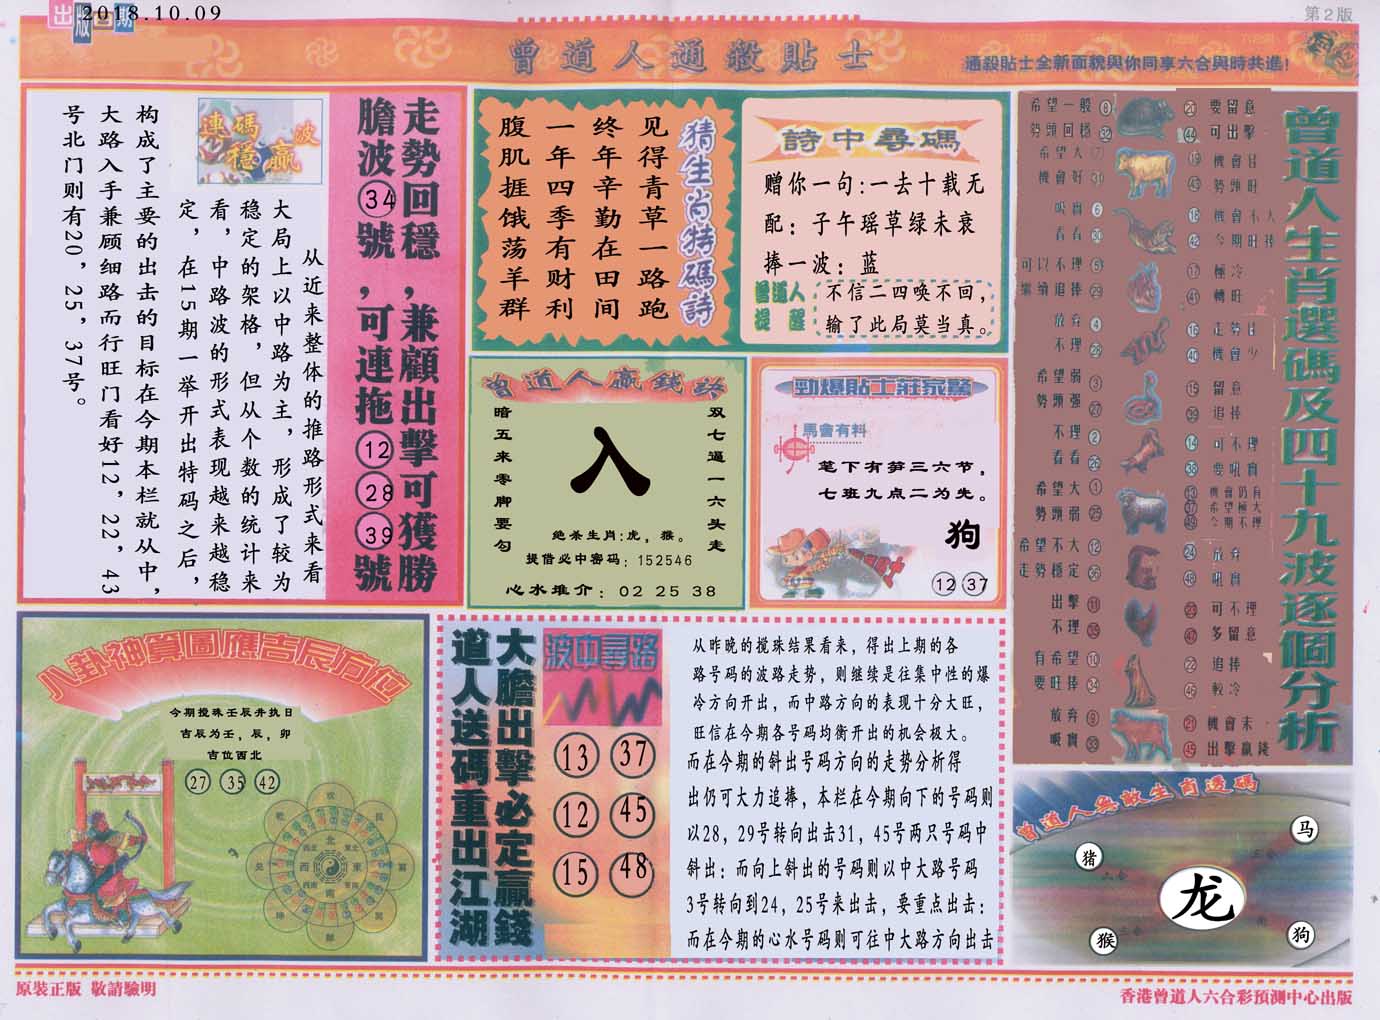 出版日期
2018.10.09
第2版
曾道人通殺貼士
通殺貼士全新面貌與你同享六合與時共進!
連碼波穩贏
走勢回穩,兼顧出擊可獲勝
膽波34號,可連拖12 28 39號
从近来整体的推路形式来看
大局上以中路为主,形成了较为
稳定的架格,但从个数的统计来
看,中路波的形式表现越来越稳
定,在15期一举开出特码之后,
构成了主要的出击的目标在今期本栏就从中,
大路入手兼顾细路而行旺门看好12,22,43
号北门则有20,25,37号。
猜生肖特碼詩
见得青草一路跑
终年辛勤在田间
一年四季有财利
腹肌捱饿荡羊群
詩中尋碼
赠你一句:一去十载无
配:子午瑶草绿未衰
捧一波:蓝
曾道人提醒
不信二四唤不回,
输了此局莫当真。
曾道人贏錢訣
双七逼一六头走
暗五来零脚要勾
入
绝杀生肖:虎,猴。
提借必中密码:152546
心水推介:02 25 38
勁爆貼士莊家驚
馬會有料
笔下有笋三六节,
七班九点二为先。
狗
12 37
曾道人生肖選碼及四十九波逐個分析
希望一般
勢頭回穩 32
希望大
機會好
吸實 6
看看 30
可以不理 5
繼續追捧 29
放弃 4
不理
希望弱 3
勢頭强 27
不理 2
看看 26
希望大 1
勢頭弱 25
希望不大 12
走勢穩定 36
出擊 11
不理 35
有希望 10
要旺捧 34
放弃 9
吸實 33
20 要留意
44 可出擊
19 機會佳
43 勢頭旺
18 機會不大
42 今期旺捧
17 極冷
41 轉旺
16 走勢佳
40 機會少
15 留意
39 追捧
14 可不理
38 要吼實
13 機會仍有
37 希望極大
49 今期不理
24 放弃
48 吼實
23 可不理
47 多留意
22 追捧
46 較冷
21 機會末
45 出擊贏錢
八卦神算圖應吉辰方位
今期搅珠壬辰并执日
吉辰为壬,辰,卯
吉位西北
27 35 42
大膽出擊必定贏錢
道人送碼重出江湖
波中尋路
13 37
12 45
15 48
从昨晚的搅珠结果看来,得出上期的各
路号码的波路走势,则继续是往集中性的爆
冷方向开出,而中路方向的表现十分大旺,
旺信在今期各号码均衡开出的机会极大。
而在今期的斜出号码方向的走势分析得
出仍可大力追捧,本栏在今期向下的号码则
以28,29号转向出击31,45号两只号码中
斜出:而向上斜出的号码则以中大路号码
3号转向到24,25号来出击,要重点出击:
而在今期的心水号码则可往中大路方向出击
曾道人無敵生肖透碼
猪
马
龙
猴
狗
原裝正版 敬請驗明
香港曾道人六合彩預測中心出版